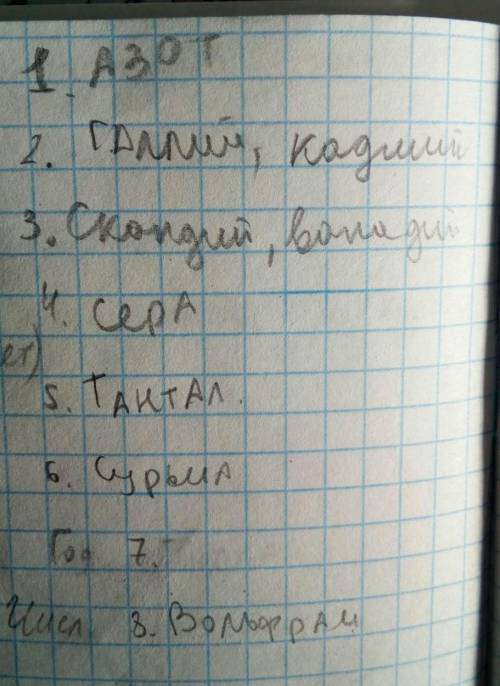 1. АЗОТ
2. Галлий, кадмий
3. Скандий, ванадий
4. сера
ет)
5. Тантал.
6. Сурьма
Год 7.
Числ 8. Вольфрам